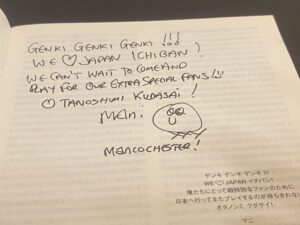 GENKI GENKI GENKI !!!
WE ♡ JAPAN ICHIBAN !
WE CAN'T WAIT TO COME AND
PLAY FOR OUR EXTRA SPECIAL FANS!
O TANOSHIMI KUDASAI !
Mani
MANCOCHESTER!
ゲンキ ゲンキ ゲンキ !!!
WE♡JAPAN イチバン!
俺たちにとって超特別なファンのために
日本へ行ってまたプレイするのが待ちきれない!
オタノシミ クダサイ!
マニ